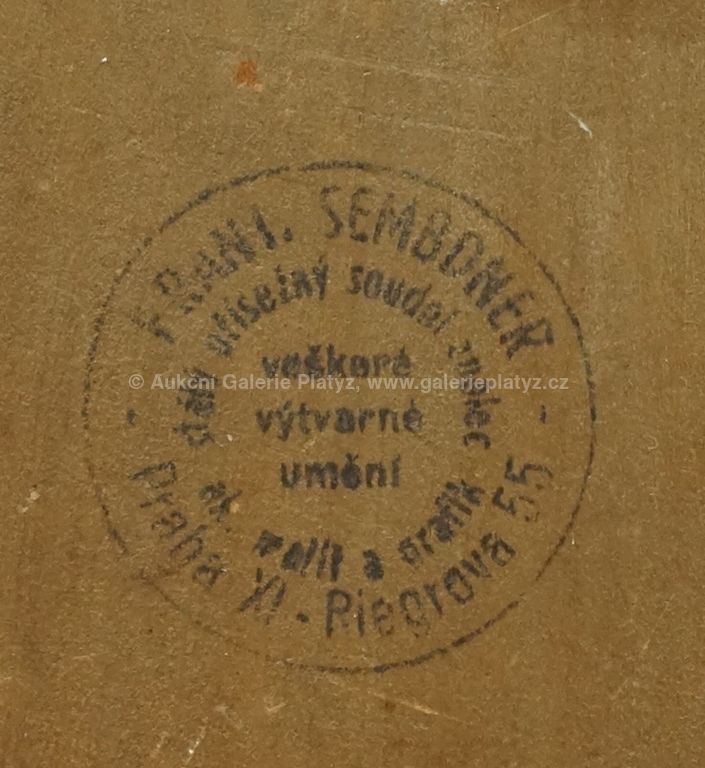 FRANT. SEMBDNER
stálý přísežný soudní znalec
veškeré
výtvarné
umění
ak. malíř a grafik
Praha XI - Riegrova 55
© Aukční Galerie Platýz, www.galerieplatyz.cz